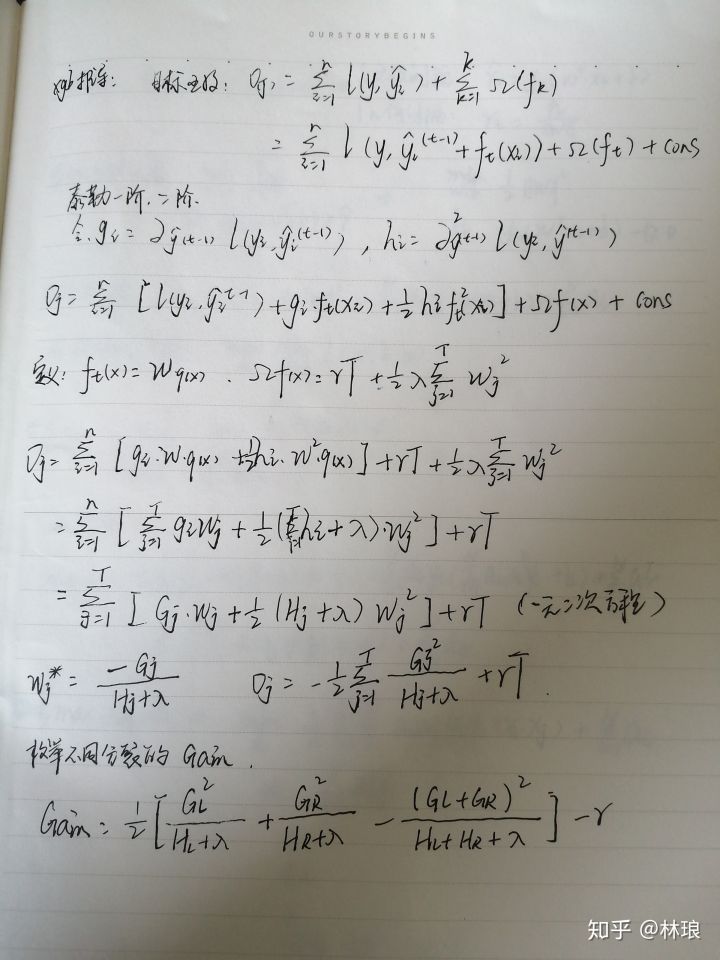 OURSTORYBEGINS
xgb推导: 目标函数: Obj = \sum_{i=1}^{n} l(y, ŷ_i) + \sum_{k=1}^{k} Ω(f_k)
= \sum_{i=1}^{n} l(y, ŷ_i^{(t-1)} + f_t(x_i)) + Ω(f_t) + cons
泰勒一阶.二阶.
令. g_i = ∂_{ŷ^{(t-1)}} l(y_i, ŷ_i^{(t-1)}), h_i = ∂^2_{ŷ^{(t-1)}} l(y_i, ŷ^{(t-1)})
Oj = \sum_{i=1}^{n} [l(y_i, ŷ_i^{t-1}) + g_i f_t(x_i) + \frac{1}{2} h_i f_t^2(x_i)] + Ωf(x) + cons
定义: f_t(x) = W_{q(x)} . Ωf(x) = rT + \frac{1}{2} λ \sum_{j=1}^{T} W_j^2
Oj = \sum_{i=1}^{n} [g_i · W · q(x) + \frac{1}{2} h_i · W^2 · q(x)] + rT + \frac{1}{2} λ \sum_{j=1}^{T} W_j^2
= \sum_{i=1}^{n} [\sum_{j=1}^{T} g_i w_j + \frac{1}{2} (h_i + λ) · w_j^2] + rT
= \sum_{j=1}^{T} [G_j · w_j + \frac{1}{2} (H_j + λ) W_j^2] + rT (一元二次方程)
W_j^* = \frac{-G_j}{H_j + λ} Oj = -\frac{1}{2} \sum_{j=1}^{T} \frac{G_j^2}{H_j + λ} + rT.
枚举不同分裂的 Gain.
Gain = \frac{1}{2} [\frac{G_L^2}{H_L + λ} + \frac{G_R^2}{H_R + λ} - \frac{(G_L + G_R)^2}{H_L + H_R + λ}] - r
知乎 @林琅